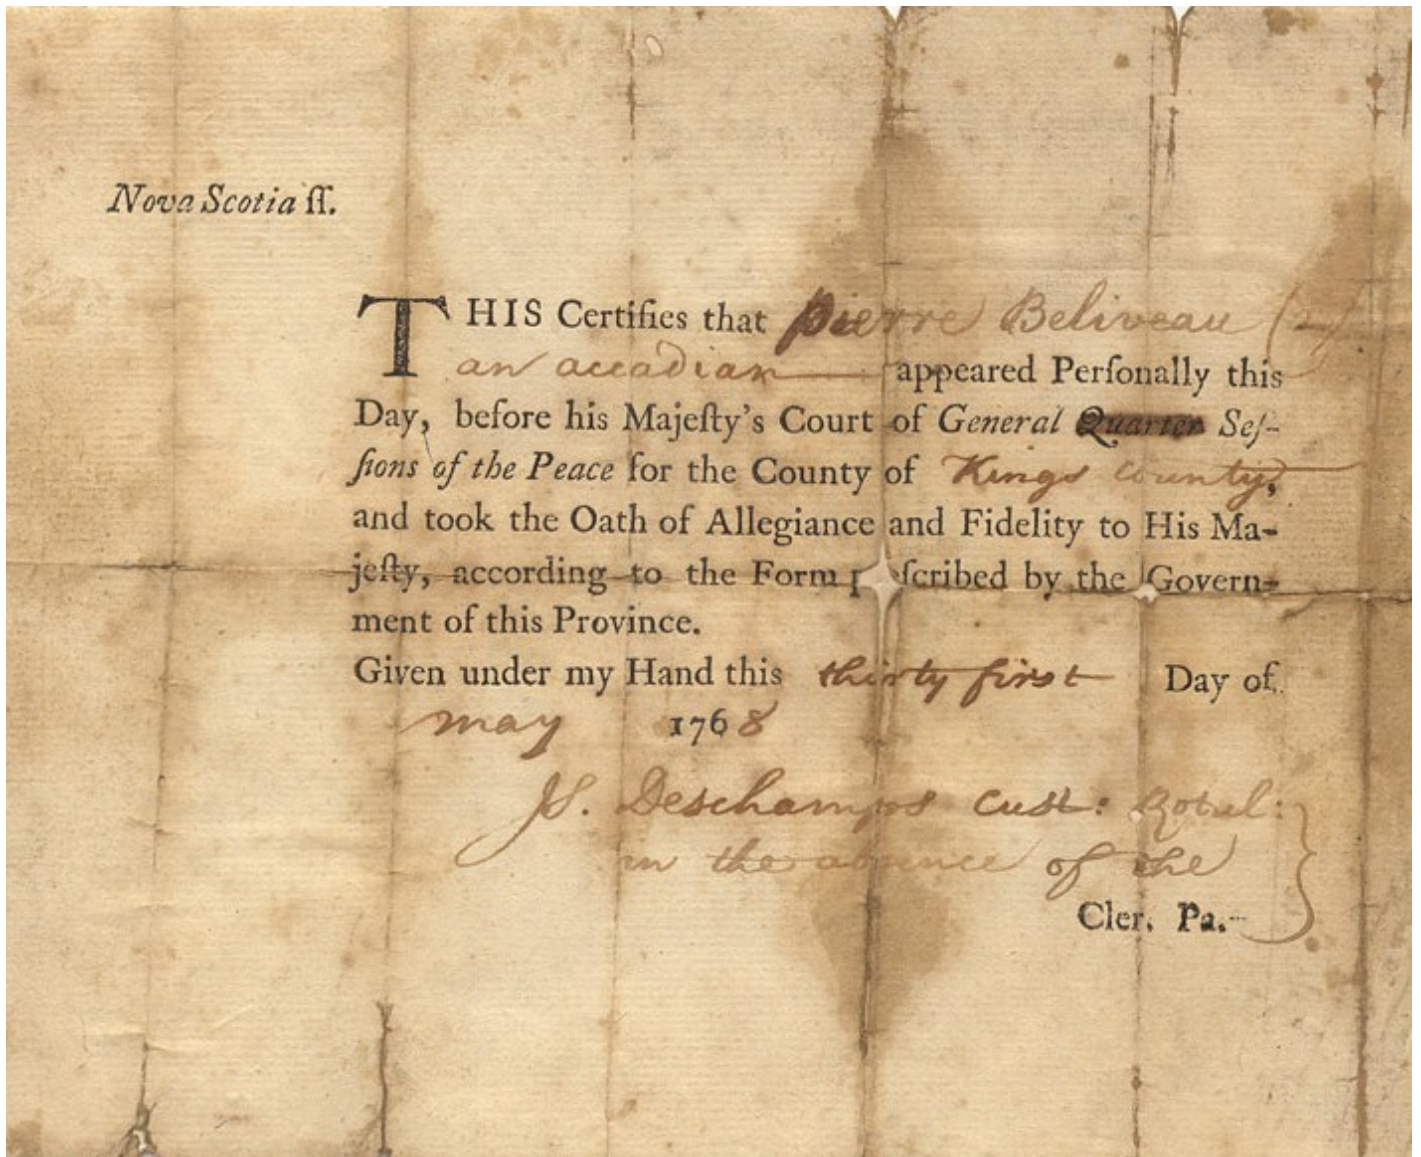 Nova Scotia ſſ.
THIS Certifies that Pierre Beliveau
an accadian appeared Perſonally this
Day, before his Majeſty's Court of General Quarter Seſ-
ſions of the Peace for the County of Kings County,
and took the Oath of Allegiance and Fidelity to His Ma-
jeſty, according to the Form p ſcribed by the Govern-
ment of this Province.
Given under my Hand this thirty first Day of
may 1768
Js. Deschamps Cust: Rotul:
in the absence of the
Cler. Pa.